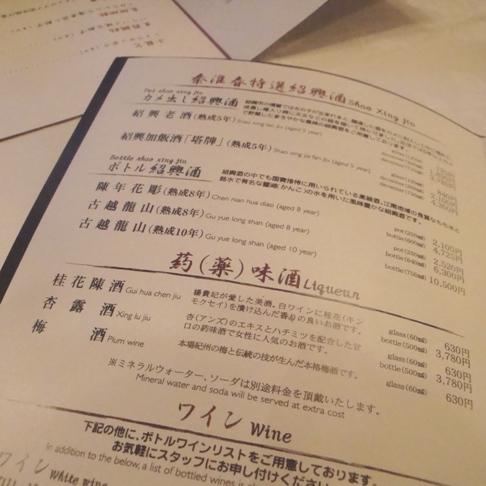 秦淮春特選紹興酒 Shao Xing jin
Pot shao xing jin
カメ出し紹興酒
紹興老酒(熟成5年) Shao xing lao jin (aged 5 year)
紹興加飯酒「塔牌」(熟成5年) Shao xing jia fan jin (aged 5 year)
Bottle shao xing jin
ボトル紹興酒
陳年花彫(熟成8年) Chen nian hua diao (aged 8 year)
古越龍山(熟成8年) Gu yue long shan (aged 8 year)
古越龍山(熟成10年) Gu yue long shan (aged 10 year)
2,100円
4,725円
2,520円
6,300円
bottle(750㎖) 10,500円
药(薬)味酒 Liqueur
桂花陳酒 Gui hua chen jiu
楊貴妃が愛した美酒。白ワインに桂花(キン
モクセイ)を漬け込んだ香りの良いお酒です。
glass(60㎖) 630円
bottle(500㎖) 3,780円
杏露酒 Xing lu jiu
杏(アンズ)のエキスとハチミツを配合した甘
口の薬味酒で女性に人気のお酒です。
glass(60㎖) 630円
bottle(500㎖) 3,780円
梅酒 Plum wine
本場紀州の梅と伝統の技が生んだ本格梅酒です。
glass(60㎖) 630円
※ミネラルウォーター、ソーダは別途料金を頂戴いたします。
Mineral water and soda will be served at extra cost
ワイン Wine
下記の他に、ボトルワインリストをご用意しております。
お気軽にスタッフにお申し付けください
In addition to the below, a list of bottled wines is
ワイン White wine